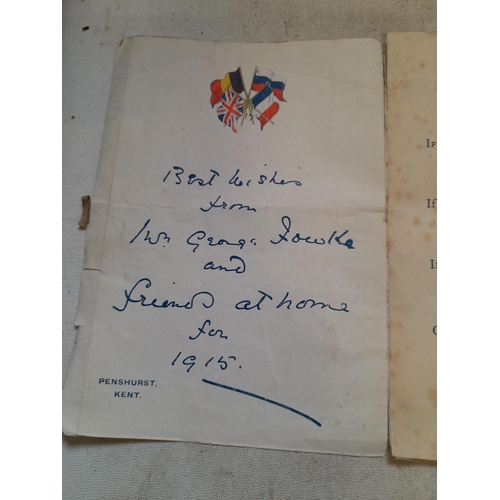 Best Wishes
from
Mrs George Fowke
and
friends at home
for
1915.
PENSHURST,
KENT.
If
If